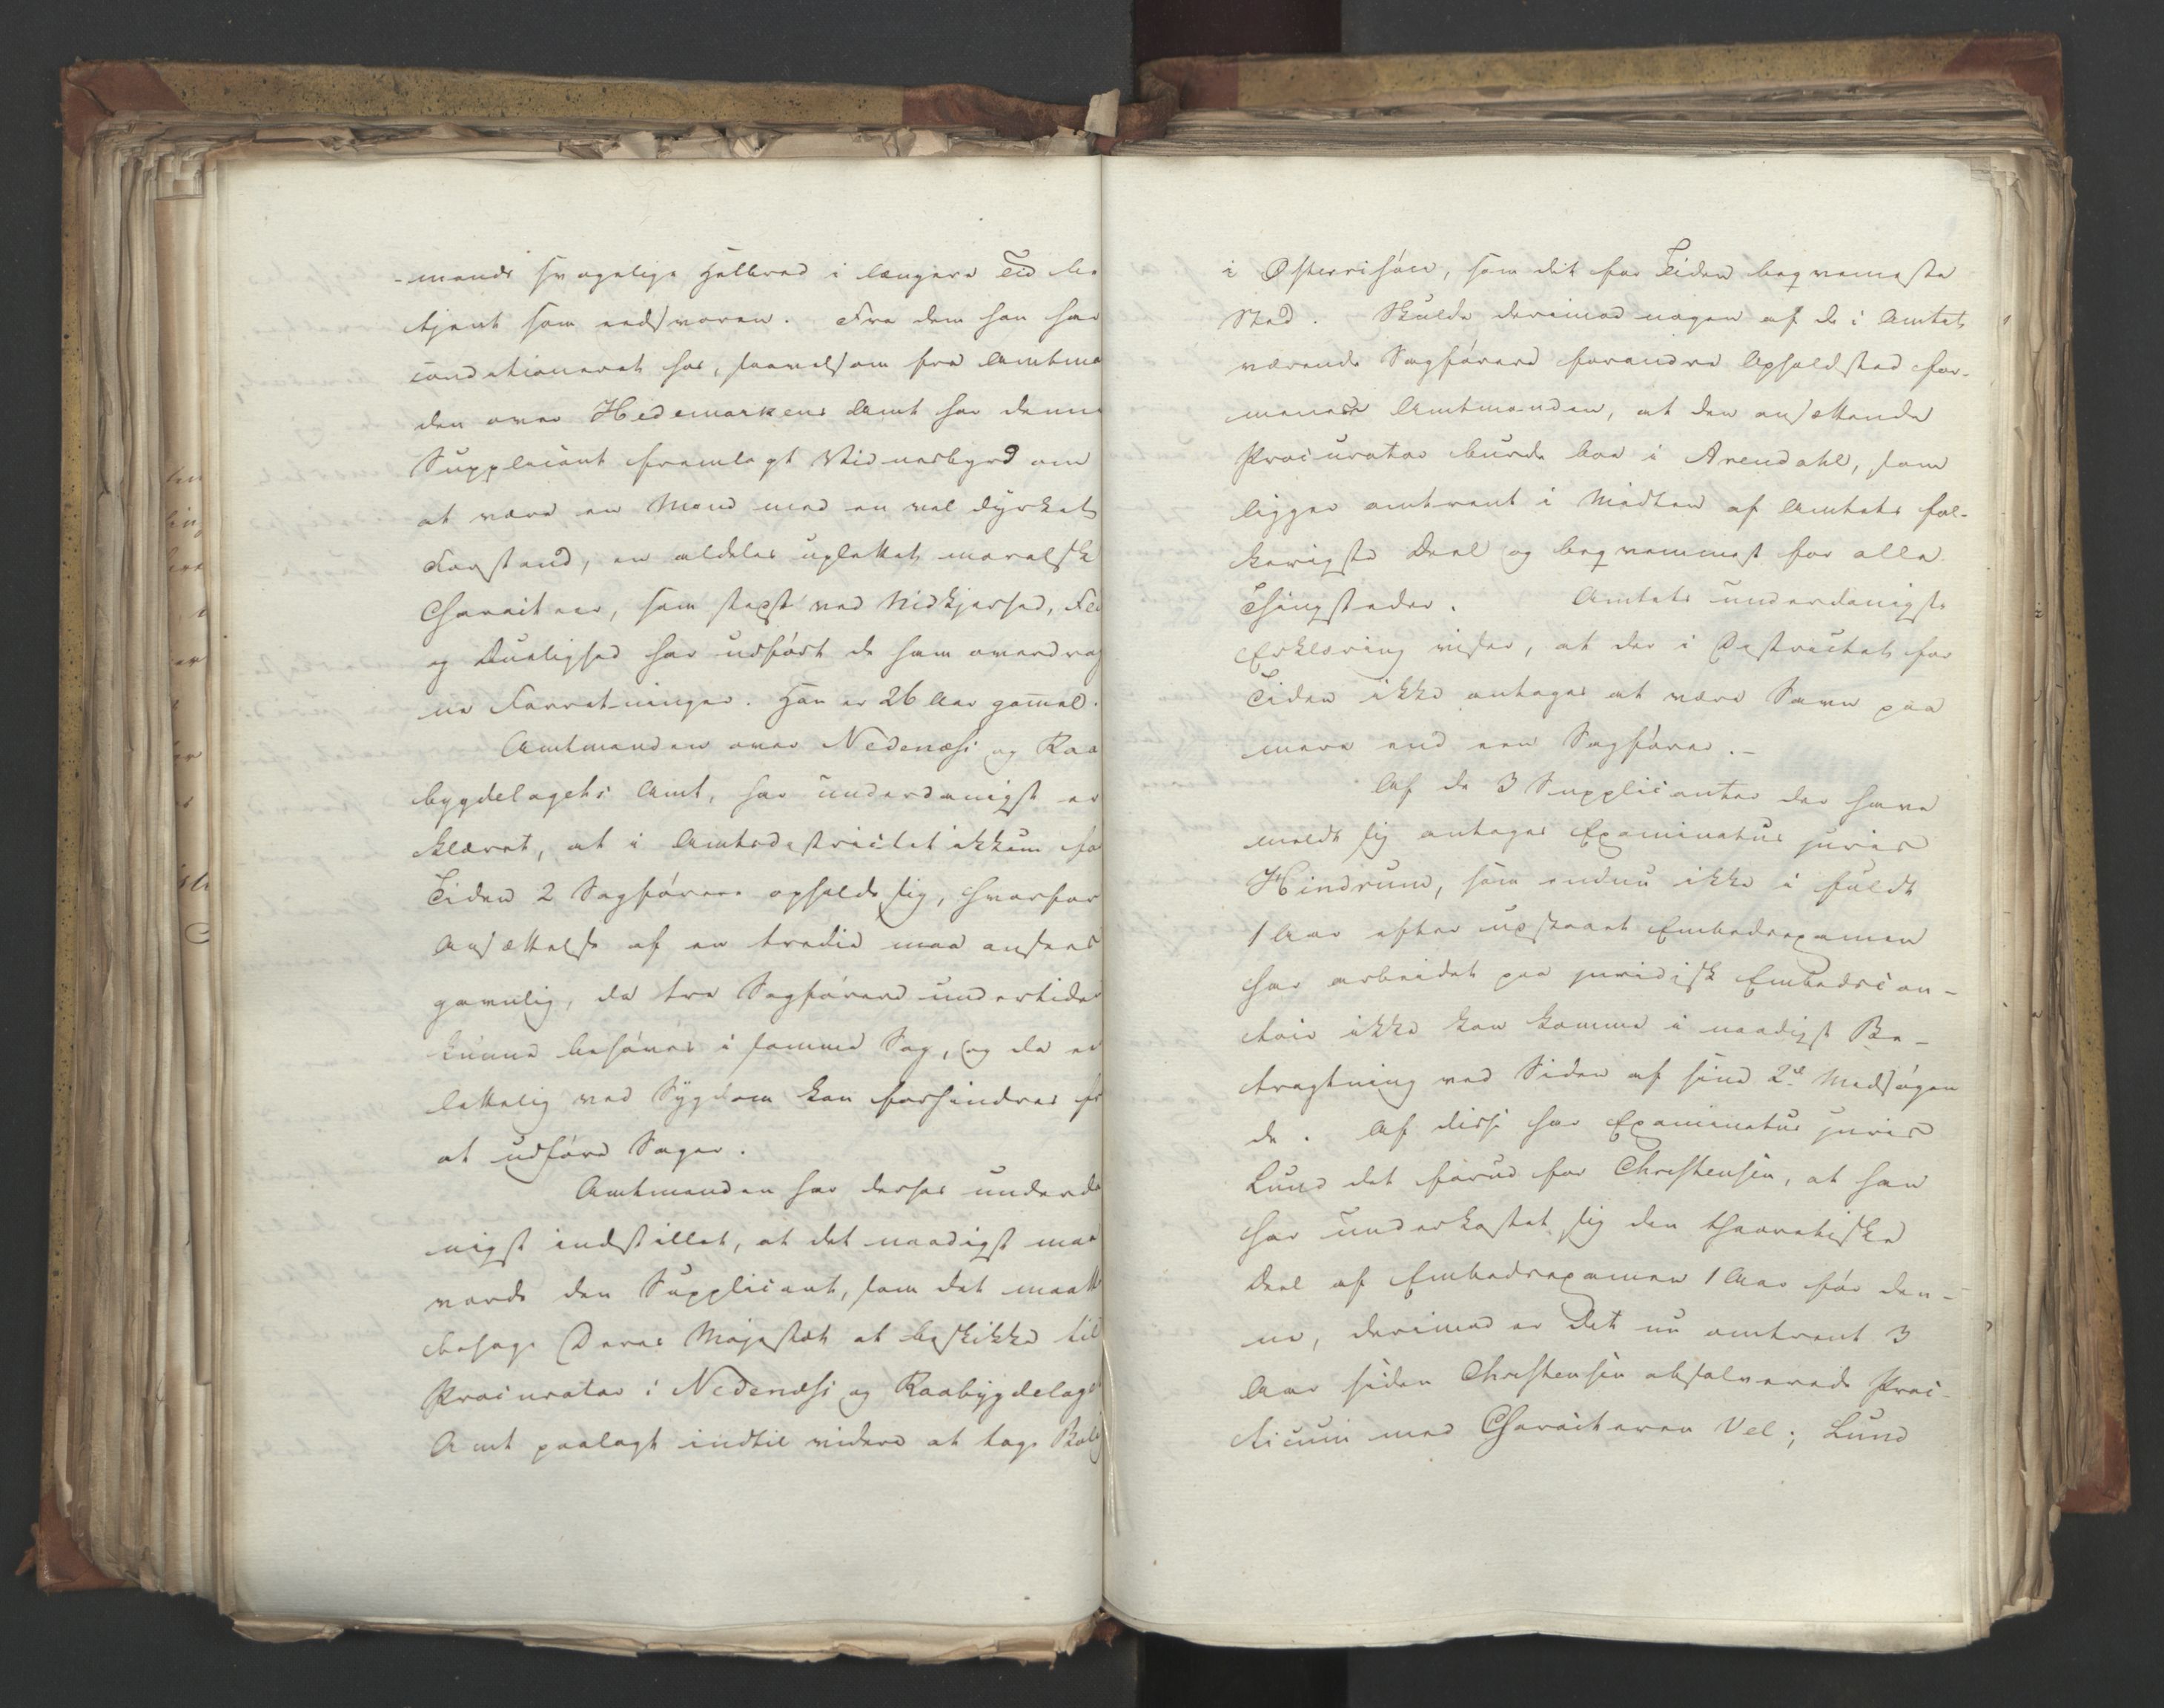 -mands svagelige Helbred i længere Tid be
tjent som edsvoren. Fra dem han har
conditioneret hos, saavelsom fra Amtma
den over Hedemarkens Amt har denne
Supplicant fremlagt Vidnesbyrd om
at være en Mand med en vel dyrket
Forstand, en aldeles uplettet moralsk
Charakteer, som stedse med Nidkjærhed, Fli
og Duelighed har udført de ham overdrag
ne Forretninger. Han er 26 Aar gammel.
Amtmanden over Nedenæss og Raa
bygdelagets Amt, har underdanigst er
klæret, at i Amtsdistrictet ikkun fo
Tiden 2 Sagførere opholde sig, hvorfor
Ansættelse af en tredie maa ansees
gavnlig, da tre Sagførere undertiden
kunne behøves i samme Sag, og da en
lettelig ved Sygdom kan forhindres fr
at udføre Sager.
Amtmanden har derhos underda
nigst indstillet, at det naadigst maa
vorde den Supplicant, som det maatte
behage Deres Majestæt at beskikke til
Procurator i Nedenæss og Raabygdelagets
Amt paalagt indtil videre at tage Bolig
i Østerrisøer, som dit for Tiden beqvemeste
Sted. Skulde derimod nogen af de i Amtet
værende Sagførere forandre Opholdsted for-
mener Amtmanden, at den ansættende
Procurator burde boe i Arendahl, som
ligger omtrent i Midten af Amtets fol-
kerigste Deel og beqvemmest for alle
Thingsteder. Amtets underdanigste
Erklæring viser, at der i Districtet for
Tiden ikke antages at være Savn paa
mere end een Sagfører.-
Af de 3 Supplicanter der have
meldt sig antages Examinatus juris
Hindrum, som endnu ikke i fuldt
1 Aar efter udstaaet Embedsexamen
har arbeidet paa juridisk Embedscon-
toir ikke kan komme i naadigst Be-
tragtning ved Siden af sine 2de Medsøgen
de. Af disse har Examinatus juris
Lund det forud for Christensen, at han
har underkastet sig den theoretiske
Deel af Embedsexamen 1 Aar før den-
ne, derimod er det nu omtrent 3
Aar siden Christensen absolverede Prac-
ticum med Charakteren Vel; Lund